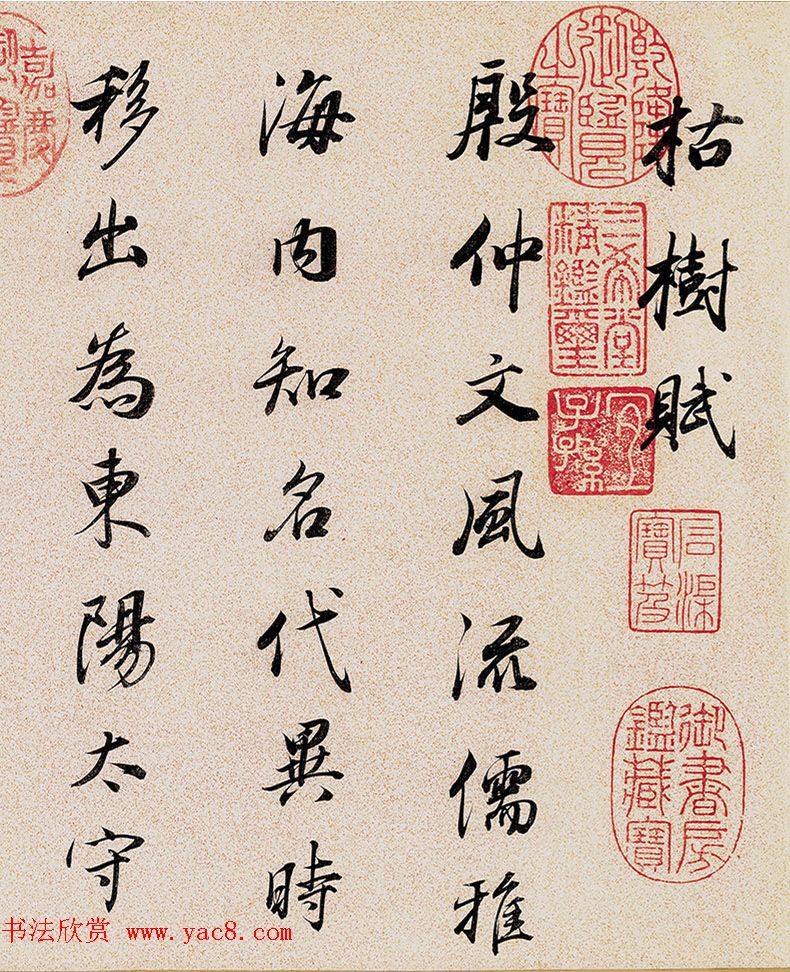 枯樹賦
乾隆御覽之寶
三希堂精鑑璽
宜子孫
石渠寶笈
御書房鑑藏寶
殷仲文風流儒雅
海内知名代異時
移出為東陽太守
嘉慶
书法欣赏 www.yac8.com